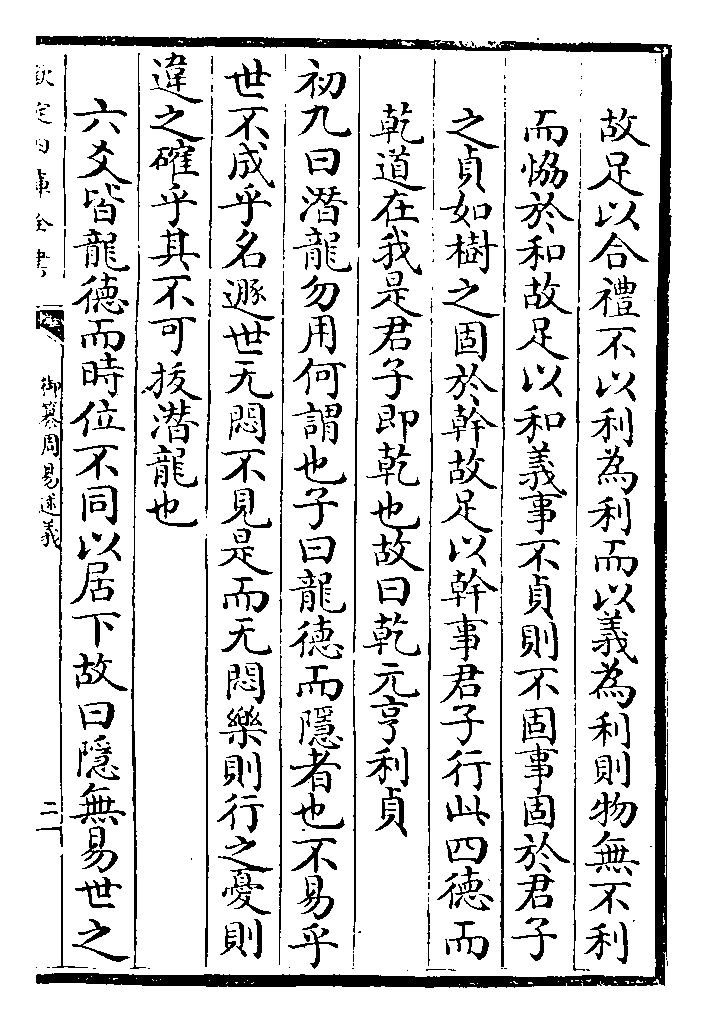 故足以合禮不以利為利而以義為利則物無不利
而恊於和故足以和義事不貞則不固事固於君子
之貞如樹之固於幹故足以幹事君子行此四德而
乾道在我是君子即乾也故曰乾元亨利貞
初九曰潛龍勿用何謂也子曰龍德而隱者也不易乎
世不成乎名遯世无悶不見是而无悶樂則行之憂則
違之確乎其不可拔潛龍也
六爻皆龍德而時位不同以居下故曰隱無易世之
欽定四庫全書
御纂周易述義
二